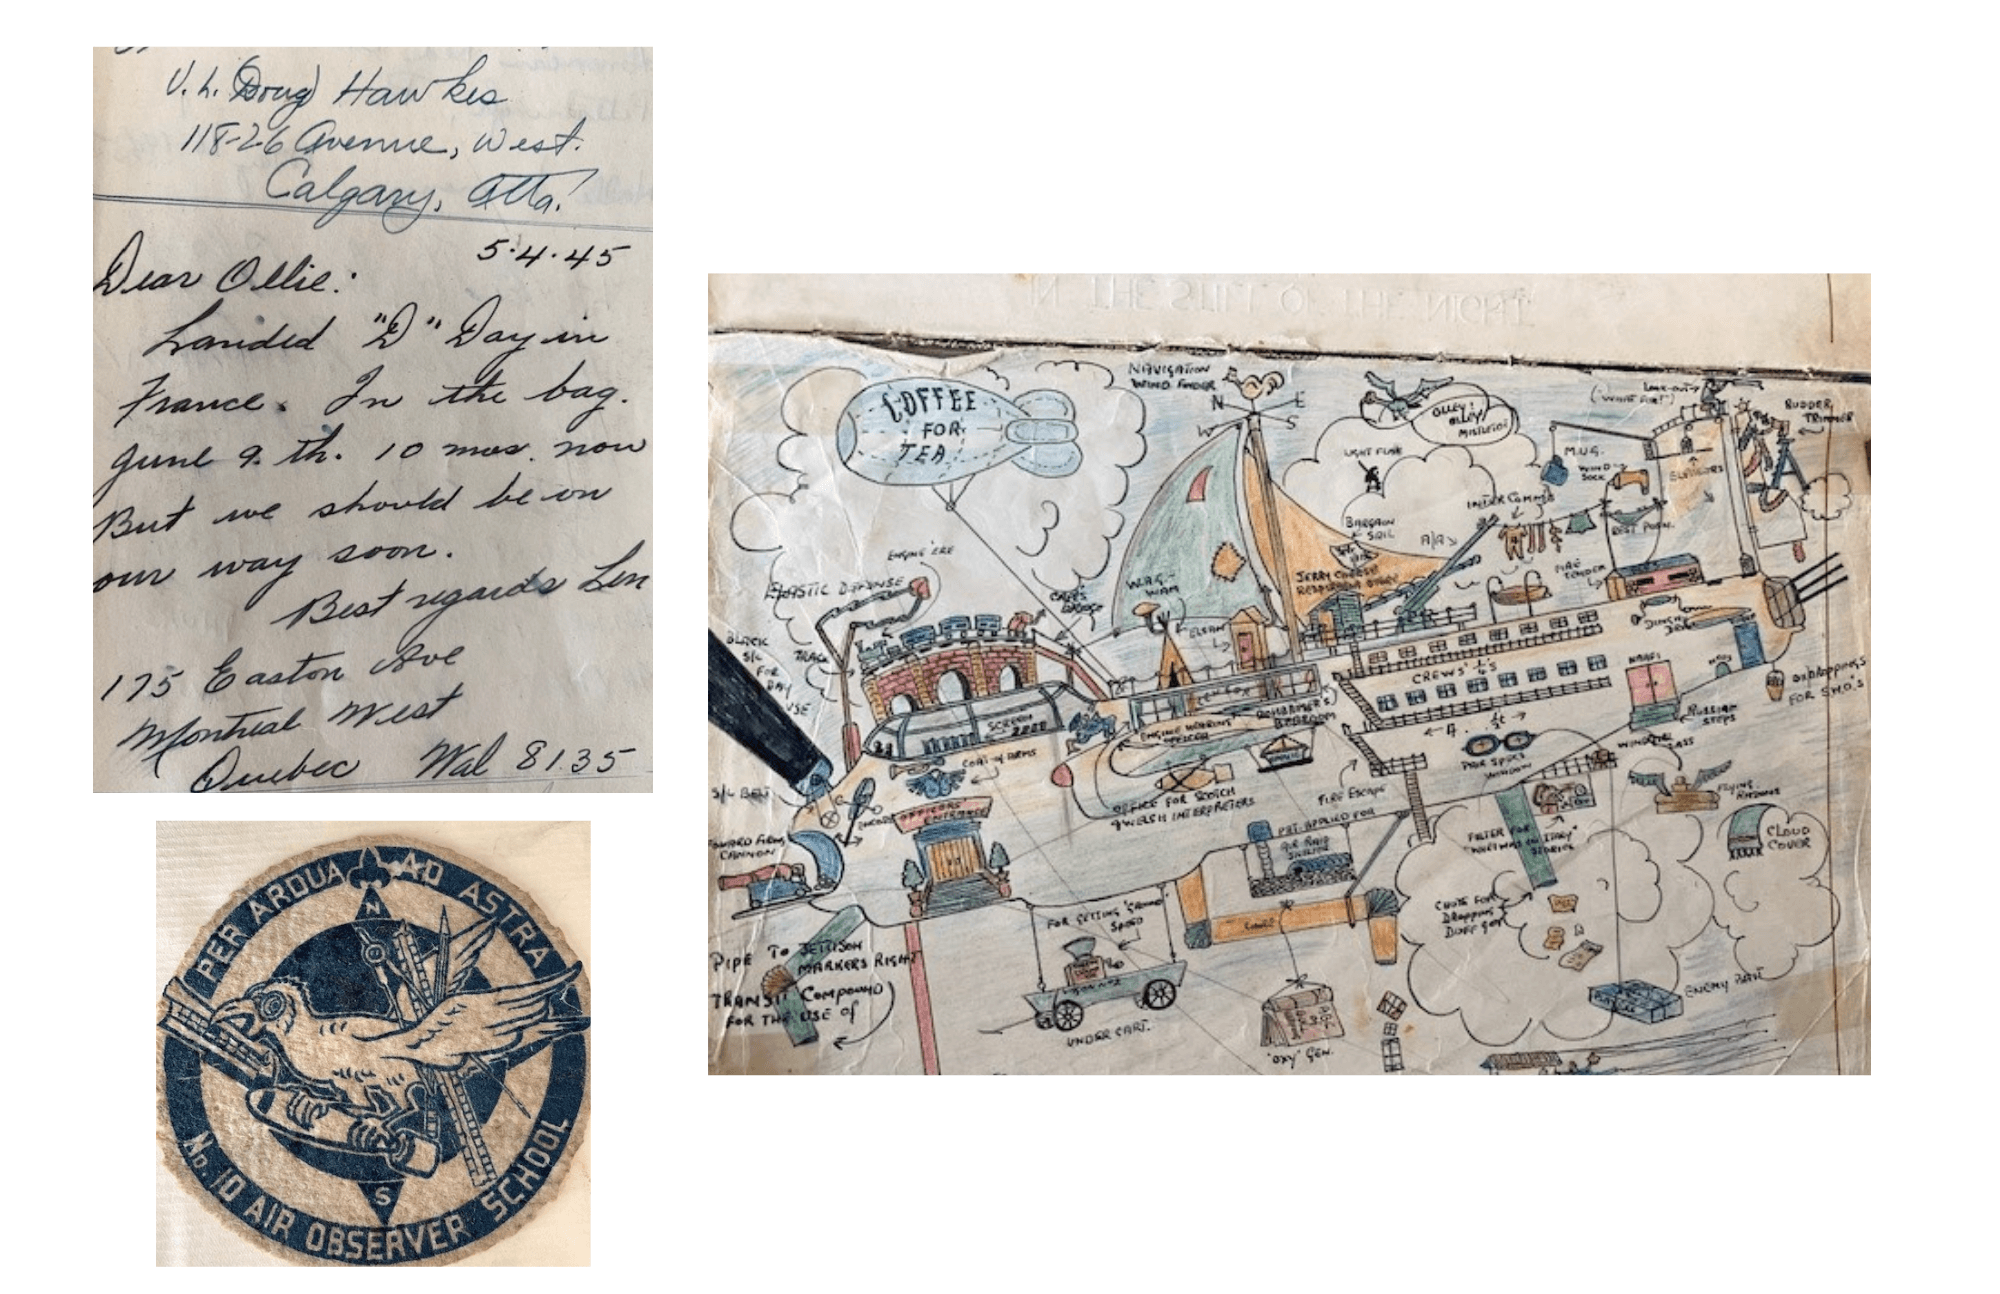 V. L. (Doug) Hawkes
118-26 Avenue, West.
Calgary, Alta.
5.4.45
Dear Ollie:
Landed "D" Day in
France. In the bag.
June 9.th. 10 mos. now
But we should be on
our way soon.
Best regards Len
175 Easton Ave
Montreal West
Quebec Wal 8135
PER ARDUA AD ASTRA
N
S
No. 10 AIR OBSERVER SCHOOL
IN THE STILL OF THE NIGHT
COFFEE
FOR
TEA
NAVIGATION
WIND FINDER
N E
W S
OLLEY!
OLLEY!
MISTLETOE
LOOK-OUT
("WHAT FOR?")
RUDDER
TRIMMER
LIGHT FLAK
M.U.G.
WIND
SOCK
ELEVATORS
INTER COMMS
REST POSN.
BARGAIN
SAIL
A/A
FIRE
TENDER
ENGINE 'ERE
ELASTIC DEFENSE
W.A.G.-
WAM
ELSAN
DINGH
BLACK
S/L
FOR
DAY
USE
TRACE
SCREEN
CREWS' ¼'S
BEDROOM
RUSSIAN
STEPS
FOR S.W.O.'S
COAT-OF-ARMS
S/L BELT
OFFICERS'
ENTRANCE
OFFICE FOR SCOTCH
& WELSH INTERPRETERS
FIRE ESCAPE
PAIR SPECS
WINDOW
FLYING
RATIONS
CLOUD
COVER
CANNON
PAT. APPLIED FOR
AIR RAID
SHELTER
FILTER FOR
CHUTE FOR
DROPPING
DUFF GEN
FOR GETTING 'GROUND'
SPEED
PIPE TO JETTISON
MARKERS RIGHT
TRANSIT COMPOUND
FOR THE USE OF
UNDER CART.
'OXY' GEN.
ENEMY BASE